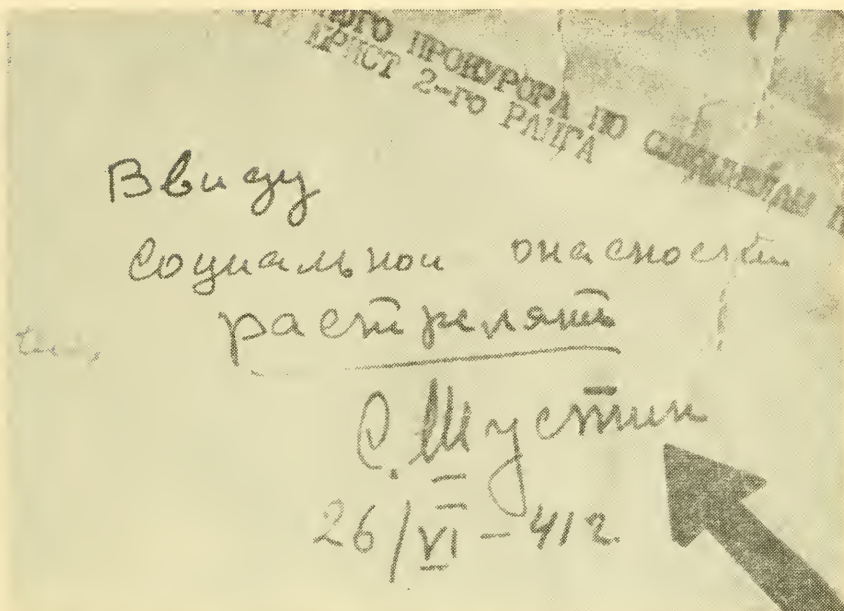 НОГО ПРОКУРОРА ПО СПЕЦДЕЛАМ
ЮРИСТ 2-ГО РАНГА
Ввиду
социальной опасности
растрелять
С. Шустин
26/VI – 41 г.